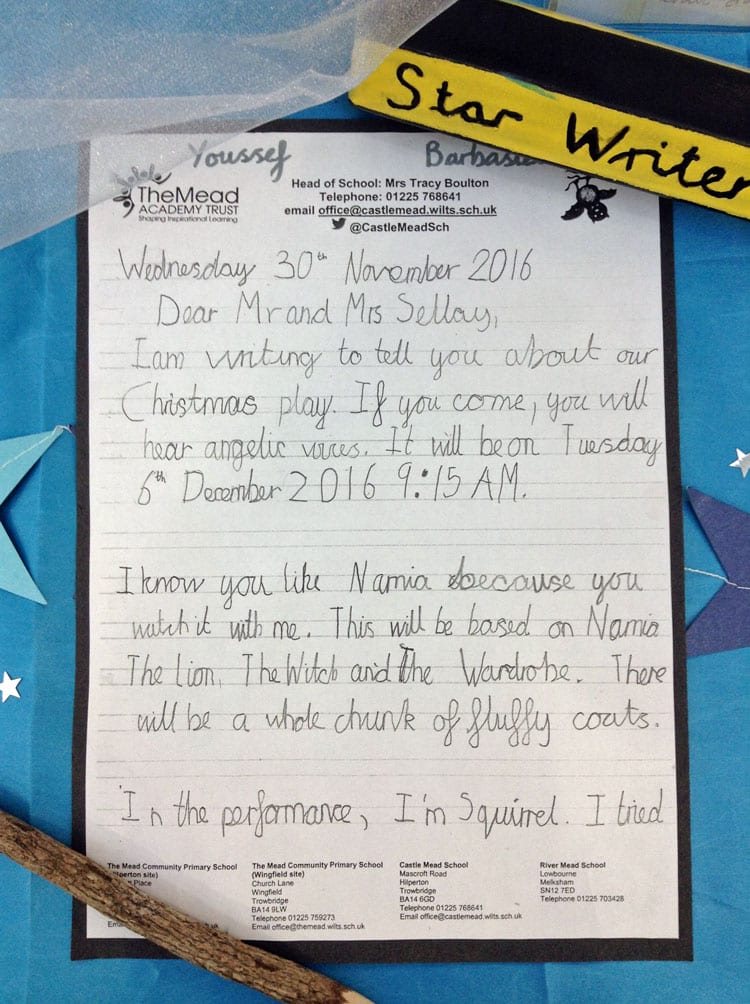 Star Writer
Youssef
TheMead
ACADEMY TRUST
Shaping Inspirational Learning
Head of School: Mrs Tracy Boulton
Telephone: 01225 768641
email office@castlemead.wilts.sch.uk
@CastleMeadSch
Wednesday 30th November 2016
Dear Mr and Mrs Sellay,
I am writing to tell you about our
Christmas play. If you come, you will
hear angelic voices. It will be on Tuesday
6th December 2016 9:15 AM.
I know you like Narnia because you
watch it with me. This will be based on Narnia
The Lion, The Witch and The Wardrobe. There
will be a whole chunk of fluffy coats.
In the performance, I'm Squirrel. I tried
The Mead Community Primary School
Place
The Mead Community Primary School
(Wingfield site)
Church Lane
Wingfield
Trowbridge
BA14 9LW
Telephone 01225 759273
Email office@themead.wilts.sch.uk
Castle Mead School
Mascroft Road
Hilperton
Trowbridge
BA14 6GD
Telephone 01225 768641
Email office@castlemead.wilts.sch.uk
River Mead School
Lowbourne
Melksham
SN12 7ED
Telephone 01225 703428